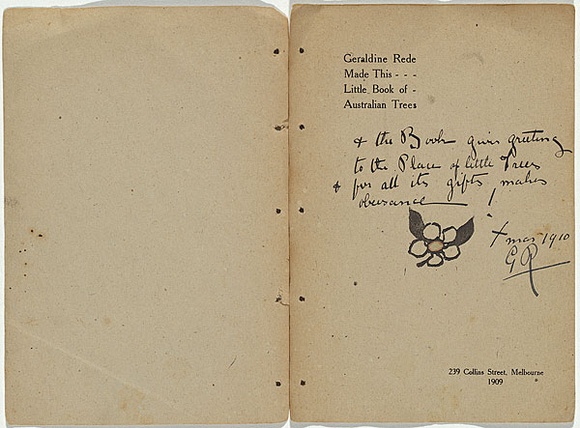 Geraldine Rede
Made This - - -
Little Book of -
Australian Trees
& the Book gives greeting
to the Place of little Trees
& for all its gifts, makes
obeisance !
Xmas 1910
GR
239 Collins Street, Melbourne
1909